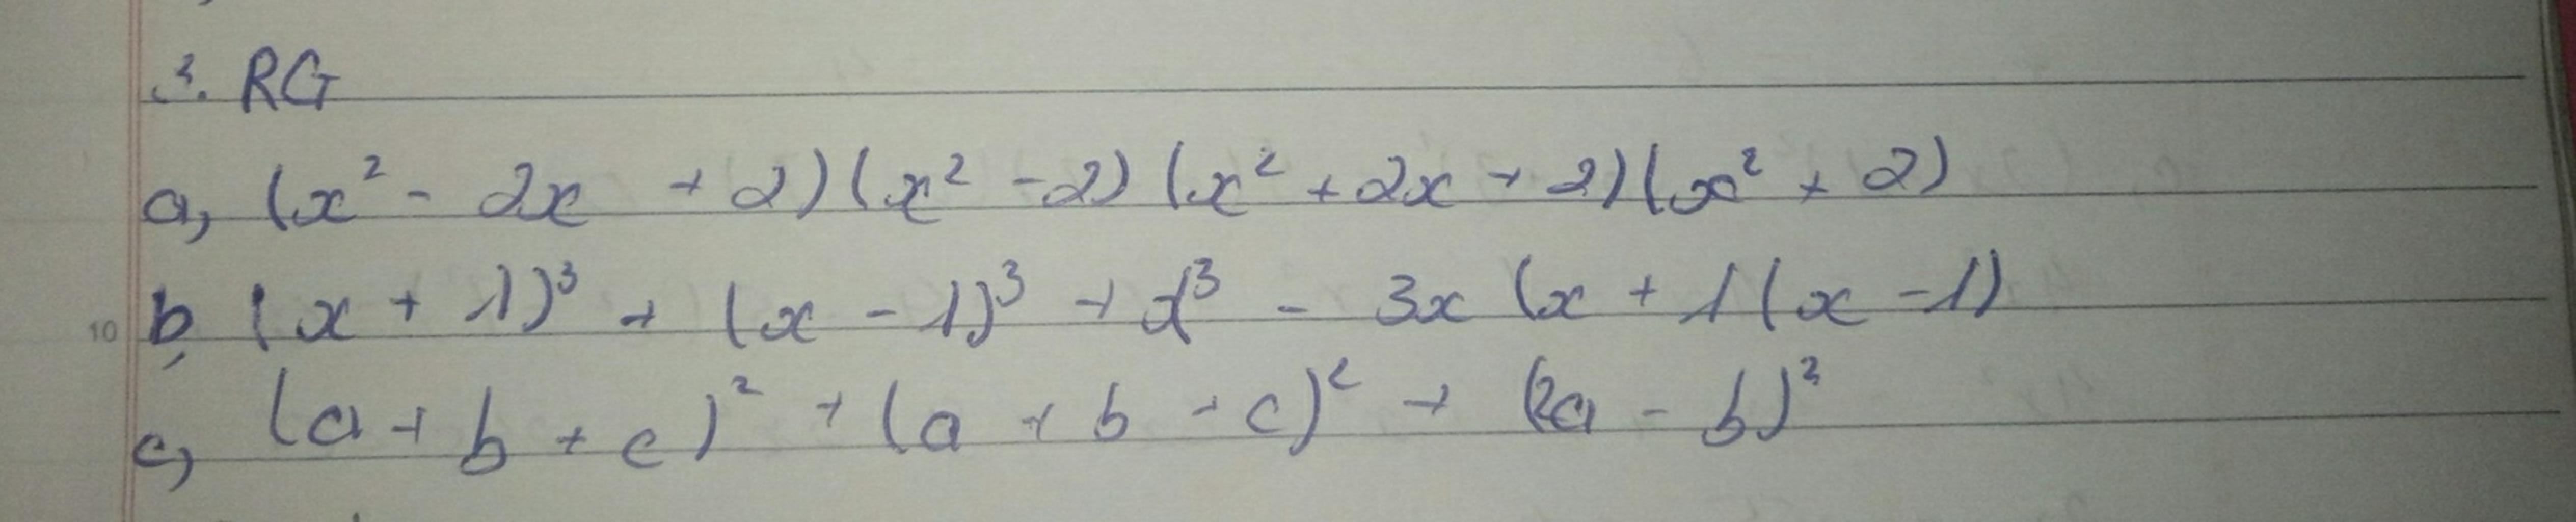 3. RG
a, (x² - 2x + 2)(x² - 2)(x² + 2x + 2)(x² + 2)
10 b, (x + 1)³ + (x - 1)³ + x³ - 3x (x + 1(x - 1)
c, (a + b + c)² + (a + b - c)² + (2a - b)²